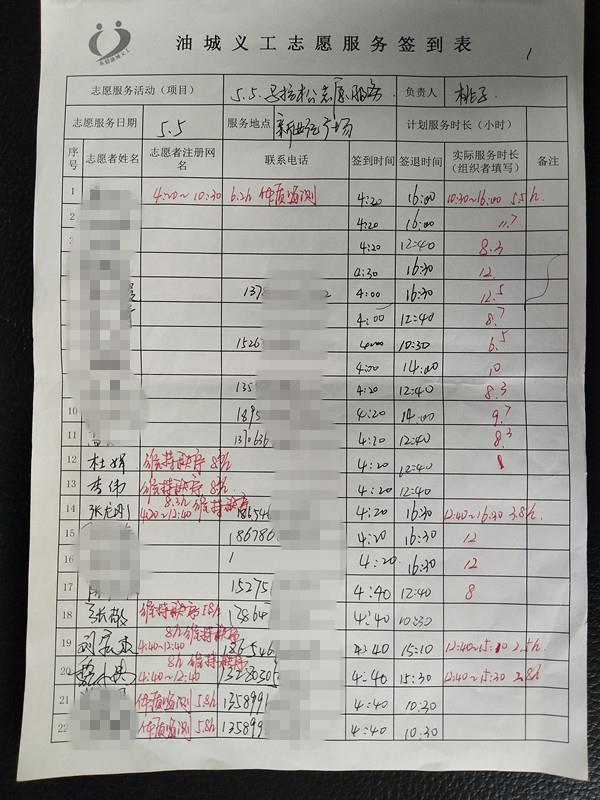 东营油城义工
油城义工志愿服务签到表
1
志愿服务活动（项目） 5.5.马拉松志愿服务 负责人 桃子
志愿服务日期 5.5 服务地点 计划服务时长（小时）
序号 志愿者姓名 志愿者注册网名 联系电话 签到时间 签退时间 实际服务时长（组织者填写） 备注
1 4:20~10:30 6.2h 体质监测 4:20 16:00 10:30~16:00 5.5h.
2 4:20 16:00 11.7
4:20 12:40 8.3
4:30 16:30 12
137 2 4:00 16:30 12.5
4:00 12:40 8.7
1526 10:30 6.5
4:00 14:00 10
135 4:20 12:40 8.3
10 1895 4:20 14:00 9.7
11 1370636 4:20 12:40 8.3
12 杜娟 维持秩序 8h 4:20 12:40
13 李伟 维持秩序 8h 4:20 12:40
14 张龙刚 8.3h 维持秩序 4:20~12:40 186546 4:20 16:30 12:40~16:30 3.8h.
15 186786 4:20 16:30 12
16 1 4:20 16:30 12
17 15275 4:40 12:40 8
18 维持秩序 5.8h 13864 4:40 10:30
19 8h 维持秩序 4:40~12:40 186546 4:40 15:10 12:40~15:10 2.5h.
20 8h 维持秩序 4:40~12:40 4:40 15:30 12:40~15:30 2.8h
21 体质监测 5.8h 1358991 4:40 10:30
22 体质监测 5.8h 135899 4:40 10:30